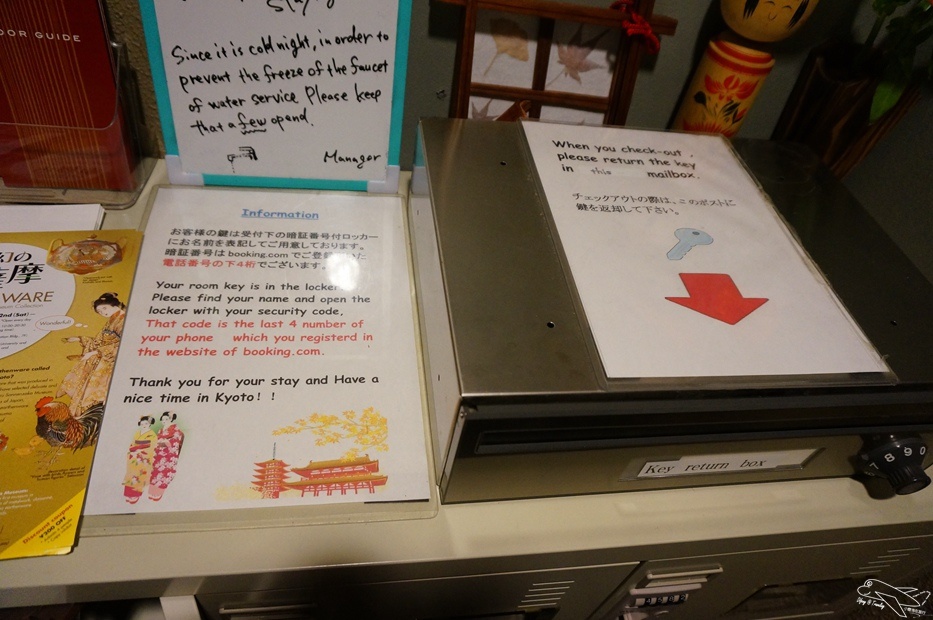 OOR GUIDE
Staying
Since it is cold night, in order to
prevent the freeze of the faucet
of water service. Please keep
that a few opend.
Manager
Information
お客様の鍵は受付下の暗証番号付ロッカー
にお名前を表記してご用意しております。
暗証番号は booking.com でご登録いた
電話番号の下4桁でございます。
Your room key is in the locker
Please find your name and open the
locker with your security code.
That code is the last 4 number of
your phone which you registerd in
the website of booking.com.
Thank you for your stay and Have a
nice time in Kyoto！！
When you check-out,
please return the key
in this mailbox.
チェックアウトの際は、このポストに
鍵を返却して下さい。
Key return box
7 8 9 0
幻の
薩摩
WARE
Wonderful!
Discount coupon
¥200 OFF